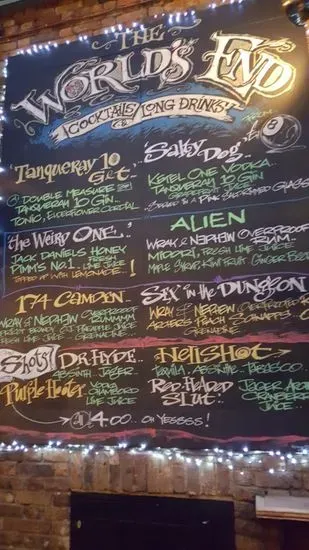 THE
WORLD'S END
COCKTAILS & LONG DRINKS
Tanqueray 10 Get..
A DOUBLE MEASURE OF
TANQUERAY 10 GIN..
TONIC, ELDERFLOWER CORDIAL
"Salty Dog"..
KETEL ONE VODKA..
TANQUERAY 10 GIN..
GRAPEFRUIT JUICE..
SERVED IN A PINK SALT RIMMED GLASS
'the Weird One'..
JACK DANIELS HONEY
PIMM'S No.1.. FRESH LIME JUICE
TOPPED UP WITH LEMONADE..!
ALIEN
WRAY & NEPHEW OVERPROOF RUM..
MIDORI, FRESH LIME JUICE
MAPLE SYRUP, KIWI FRUIT.. GINGER BEER
174 CAMDEN..
WRAY & NEPHEW OVERPROOF
BRANDY PINEAPPLE JUICE
LIME JUICE.. GRENADINE..
SIX IN THE DUNGEON
WRAY & NEPHEW OVERPROOF
ARCHERS PEACH SCHNAPPS..
GRENADINE..
Shots!
DR. HYDE..
ABSINTH, JAGER..
Purple Hooter
VODKA
CHAMBORD
LIME JUICE
HELLSHOT..
TEQUILA, ABSINTHE, TABASCO..
RED HEADED SLUT!
JAGER
CRANBERRY JUICE..
4.00... OH YESSSS!